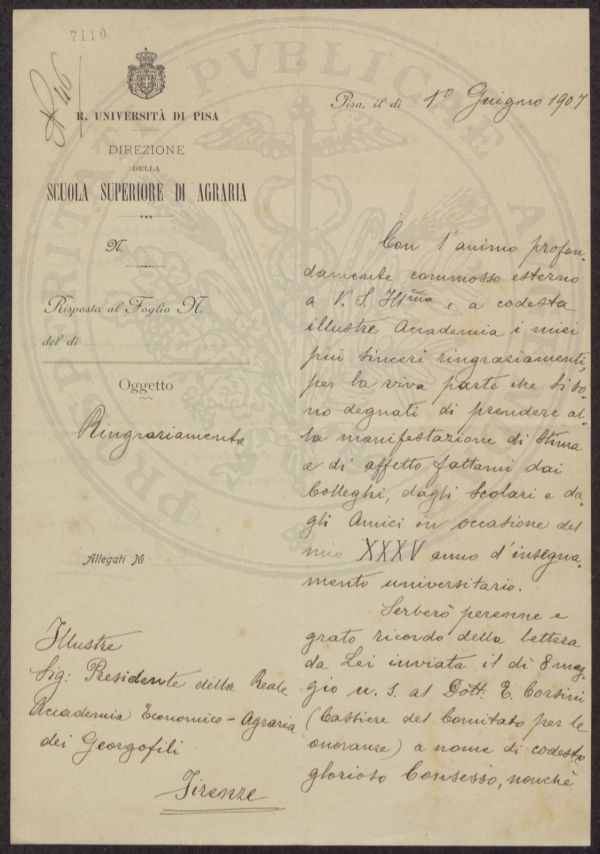 7110
N 46
R. UNIVERSITÀ DI PISA
DIREZIONE
DELLA
SCUOLA SUPERIORE DI AGRARIA
N.
Risposta al Foglio N.
del dì
Oggetto
Ringraziamento
Allegati N.
Illustre
Sig: Presidente della Reale
Accademia Economico-Agraria
dei Georgofili
Firenze
Pisa, il dì 1º Giugno 1907
Con l'animo profon-
damente commosso esterno
a V. S. Illma e a codesta
illustre Accademia i miei
più sinceri ringraziamenti,
per la viva parte che si so-
no degnati di prendere al-
la manifestazione di stima
e di affetto fattami dai
Colleghi, dagli Scolari e da-
gli Amici in occasione del
mio XXXV anno d'insegna-
mento universitario.
Serberò perenne e
grato ricordo della lettera
da Lei inviata il dì 8 mag-
gio u. s. al Dott. E. Corsini
(Cassiere del Comitato per le
onoranze) a nome di codesto
glorioso Consesso, nonchè
PROSPERITATI PVBLICAE AVGENDAE